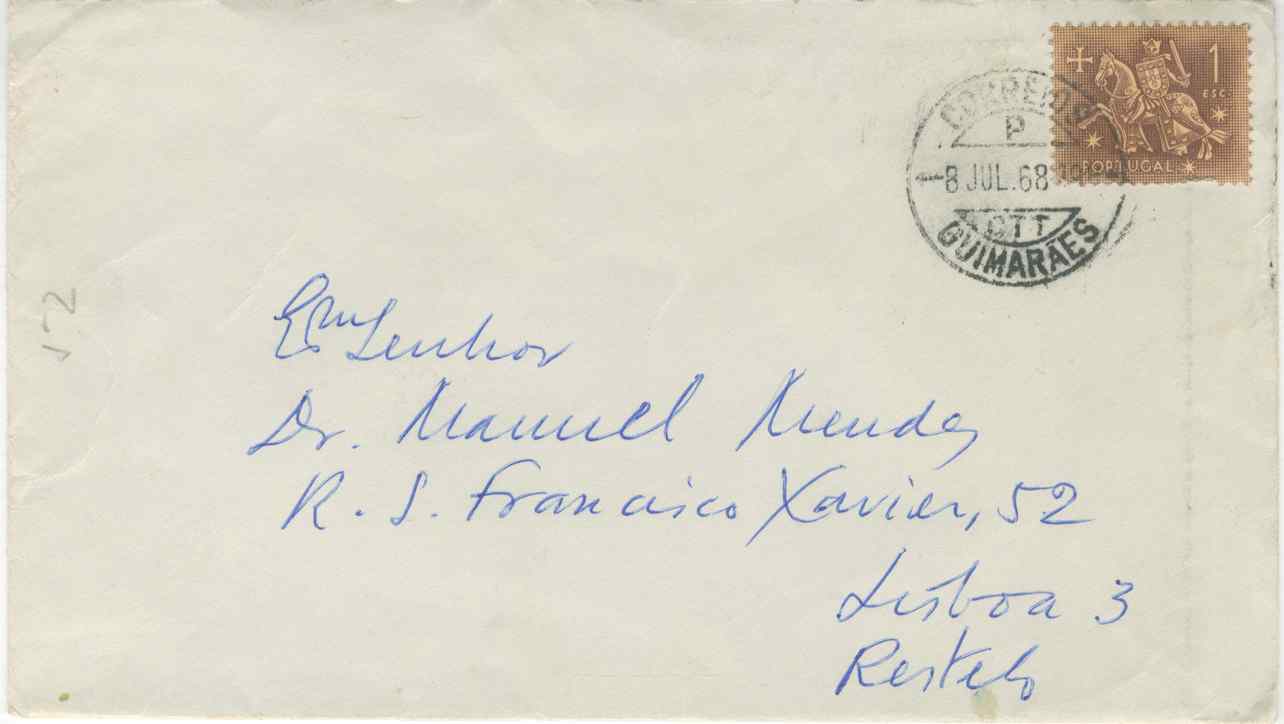 1
ESC.
PORTUGAL
CORREIOS
P
-8 JUL.68
CTT
GUIMARÃES
52
Exmo Senhor
Dr. Manuel Mendes
R. S. Francisco Xavier, 52
Lisboa 3
Restelo